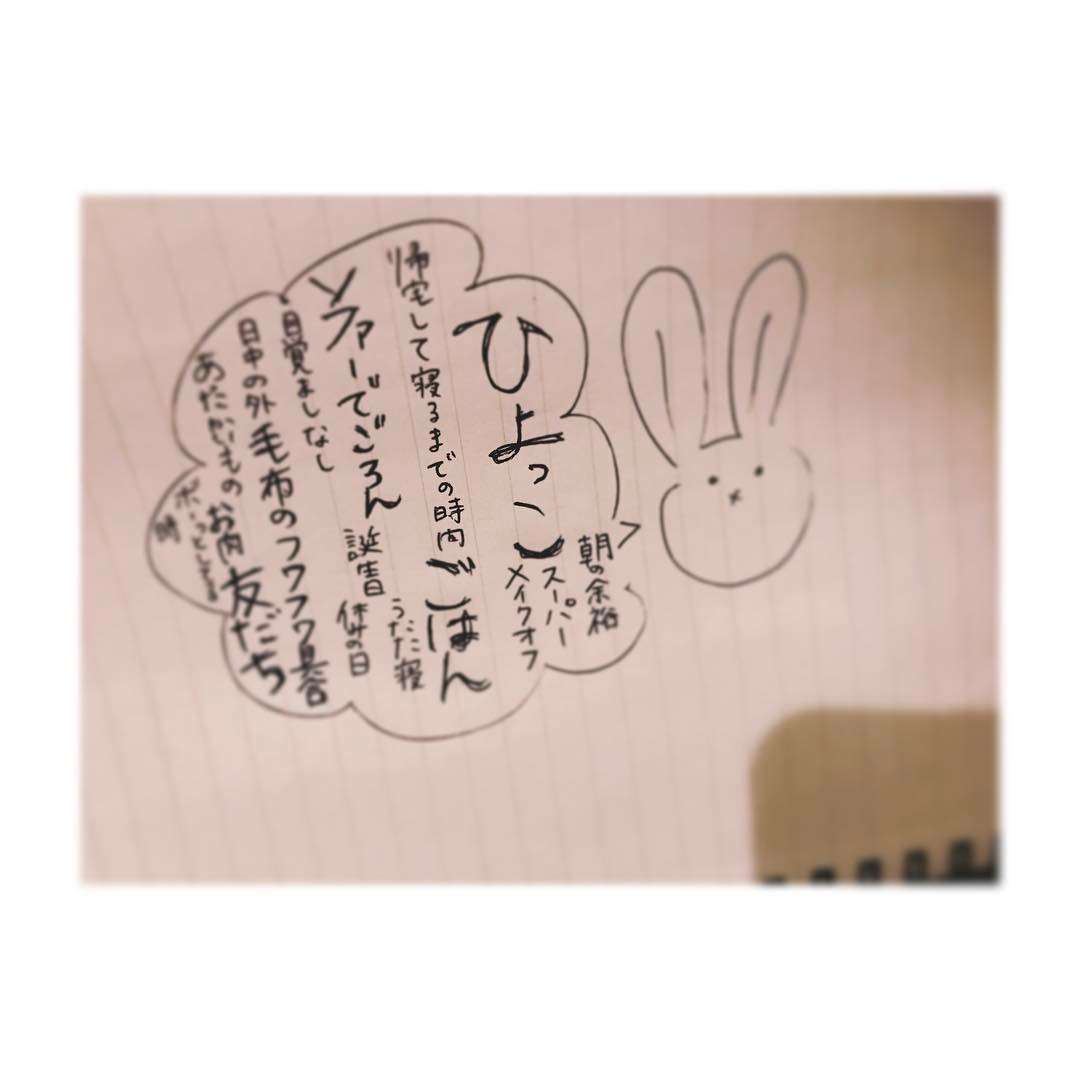 ひよっこ
朝の余裕
スーパー
メイクオフ
帰宅して寝るまでの時間
ごはん
うたた寝
ソファーでごろん
誕生日
休みの日
目覚ましなし
毛布のフワフワ具合
日中の外
友だち
あたたかいもの
お肉
ボーっとする
時